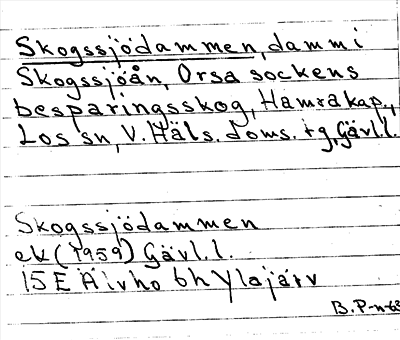 Skogssjödammen, damm i
Skogssjöån, Orsa sockens
besparingsskog, Hamra kap.,
Los sn, V. Häls. doms. tg, Gävl.l.
Skogssjödammen
ek (1959) Gävl.l.
15 E Älvho 6h Ylajärv
B. P-n-63